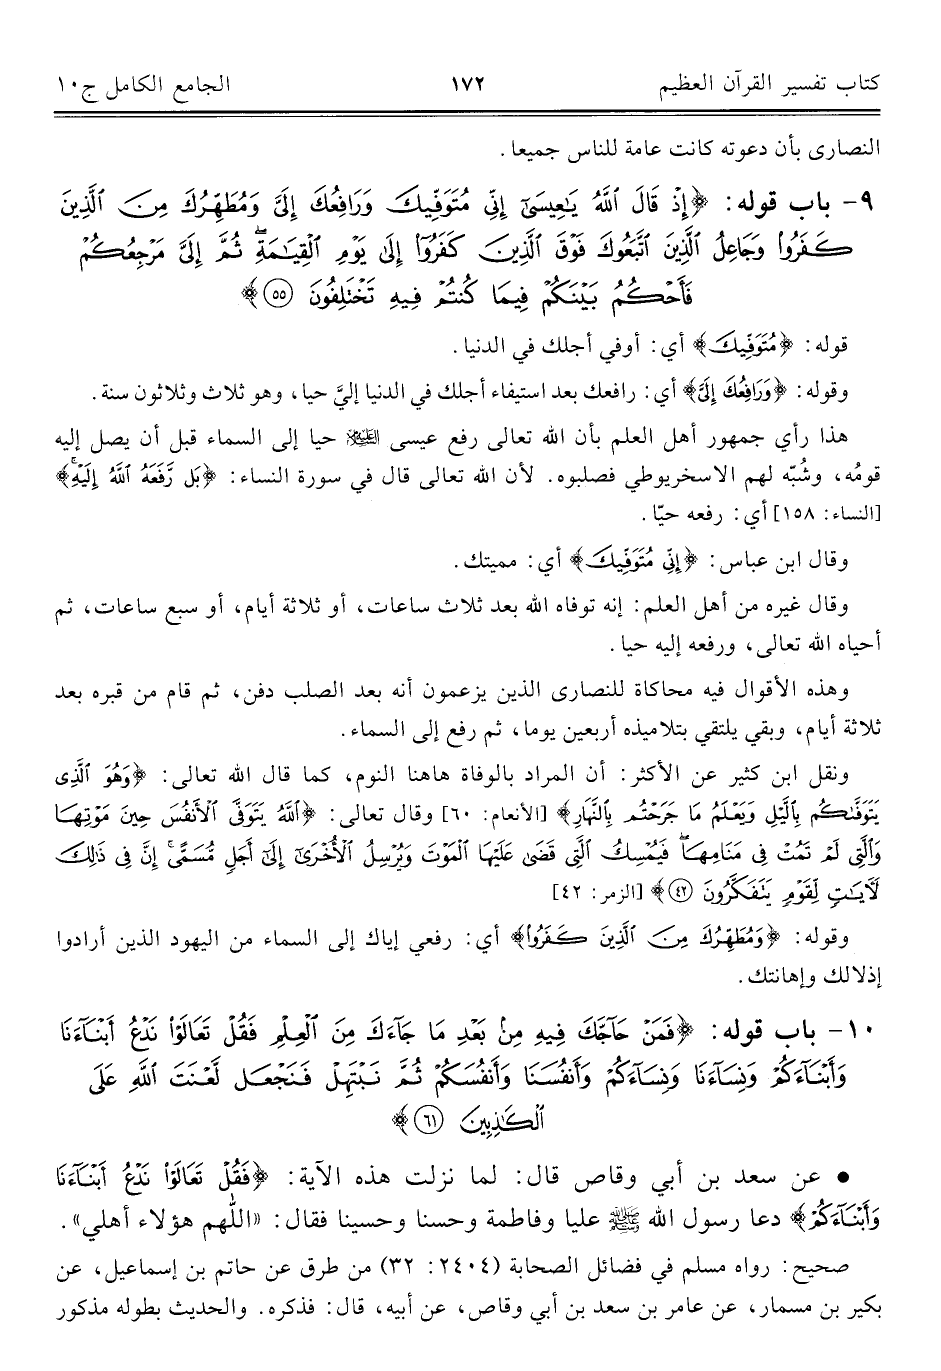 كتاب تفسير القرآن العظيم ١٧٢ الجامع الكامل ج١٠
النصارى بأن دعوته كانت عامة للناس جميعا.
٩- باب قوله: ﴿إِذْ قَالَ ٱللَّهُ يَـٰعِيسَىٰٓ إِنِّى مُتَوَفِّيكَ وَرَافِعُكَ إِلَىَّ وَمُطَهِّرُكَ مِنَ ٱلَّذِينَ
كَفَرُوا۟ وَجَاعِلُ ٱلَّذِينَ ٱتَّبَعُوكَ فَوْقَ ٱلَّذِينَ كَفَرُوٓا۟ إِلَىٰ يَوْمِ ٱلْقِيَـٰمَةِ ۖ ثُمَّ إِلَىَّ مَرْجِعُكُمْ
فَأَحْكُمُ بَيْنَكُمْ فِيمَا كُنتُمْ فِيهِ تَخْتَلِفُونَ ٥٥﴾
قوله: ﴿مُتَوَفِّيكَ﴾ أي: أوفي أجلك في الدنيا.
وقوله: ﴿وَرَافِعُكَ إِلَىَّ﴾ أي: رافعك بعد استيفاء أجلك في الدنيا إليَّ حيا، وهو ثلاث وثلاثون سنة.
هذا رأي جمهور أهل العلم بأن الله تعالى رفع عيسى عليه السلام حيا إلى السماء قبل أن يصل إليه
قومُه، وشُبِّه لهم الاسخريوطي فصلبوه. لأن الله تعالى قال في سورة النساء: ﴿بَل رَّفَعَهُ ٱللَّهُ إِلَيْهِ ۚ﴾
[النساء: ١٥٨] أي: رفعه حيّا.
وقال ابن عباس: ﴿إِنِّى مُتَوَفِّيكَ﴾ أي: مميتك.
وقال غيره من أهل العلم: إنه توفاه الله بعد ثلاث ساعات، أو ثلاثة أيام، أو سبع ساعات، ثم
أحياه الله تعالى، ورفعه إليه حيا.
وهذه الأقوال فيه محاكاة للنصارى الذين يزعمون أنه بعد الصلب دفن، ثم قام من قبره بعد
ثلاثة أيام، وبقي يلتقي بتلاميذه أربعين يوما، ثم رفع إلى السماء.
ونقل ابن كثير عن الأكثر: أن المراد بالوفاة هاهنا النوم، كما قال الله تعالى: ﴿وَهُوَ ٱلَّذِى
يَتَوَفَّىٰكُم بِٱلَّيْلِ وَيَعْلَمُ مَا جَرَحْتُم بِٱلنَّهَارِ﴾ [الأنعام: ٦٠] وقال تعالى: ﴿ٱللَّهُ يَتَوَفَّى ٱلْأَنفُسَ حِينَ مَوْتِهَا
وَٱلَّتِى لَمْ تَمُتْ فِى مَنَامِهَا ۖ فَيُمْسِكُ ٱلَّتِى قَضَىٰ عَلَيْهَا ٱلْمَوْتَ وَيُرْسِلُ ٱلْأُخْرَىٰٓ إِلَىٰٓ أَجَلٍ مُّسَمًّى ۚ إِنَّ فِى ذَٰلِكَ
لَـَٔايَـٰتٍ لِّقَوْمٍ يَتَفَكَّرُونَ ٤٢﴾ [الزمر: ٤٢]
وقوله: ﴿وَمُطَهِّرُكَ مِنَ ٱلَّذِينَ كَفَرُوا۟﴾ أي: رفعي إياك إلى السماء من اليهود الذين أرادوا
إذلالك وإهانتك.
١٠- باب قوله: ﴿فَمَنْ حَآجَّكَ فِيهِ مِنۢ بَعْدِ مَا جَآءَكَ مِنَ ٱلْعِلْمِ فَقُلْ تَعَالَوْا۟ نَدْعُ أَبْنَآءَنَا
وَأَبْنَآءَكُمْ وَنِسَآءَنَا وَنِسَآءَكُمْ وَأَنفُسَنَا وَأَنفُسَكُمْ ثُمَّ نَبْتَهِلْ فَنَجْعَل لَّعْنَتَ ٱللَّهِ عَلَى
ٱلْكَـٰذِبِينَ ٦١﴾
• عن سعد بن أبي وقاص قال: لما نزلت هذه الآية: ﴿فَقُلْ تَعَالَوْا۟ نَدْعُ أَبْنَآءَنَا
وَأَبْنَآءَكُمْ﴾ دعا رسول الله ﷺ عليا وفاطمة وحسنا وحسينا فقال: «اللّهم هؤلاء أهلي».
صحيح: رواه مسلم في فضائل الصحابة (٢٤٠٤: ٣٢) من طرق عن حاتم بن إسماعيل، عن
بكير بن مسمار، عن عامر بن سعد بن أبي وقاص، عن أبيه، قال: فذكره. والحديث بطوله مذكور